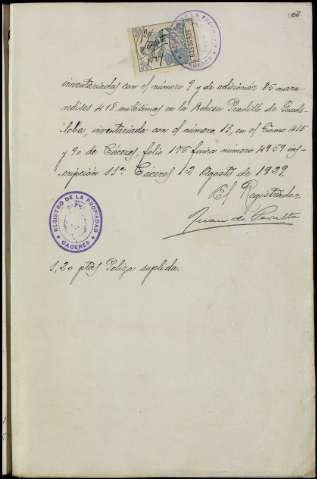 inventariadas con el número 9 y de adición 85 mara
vedises 418 milésimas en la Dehesa Pradillo de Guadi
loba inventariada con el número 13, en el tomo 415
y 90 de Cáceres, folio 176 finca número 4951 ins
cripción 18ª. Cáceres 12 Agosto de 1929
El Registrador
Juan de
REGISTRO DE LA PROPIEDAD
CÁCERES
1,20 ptas Poliza suplida